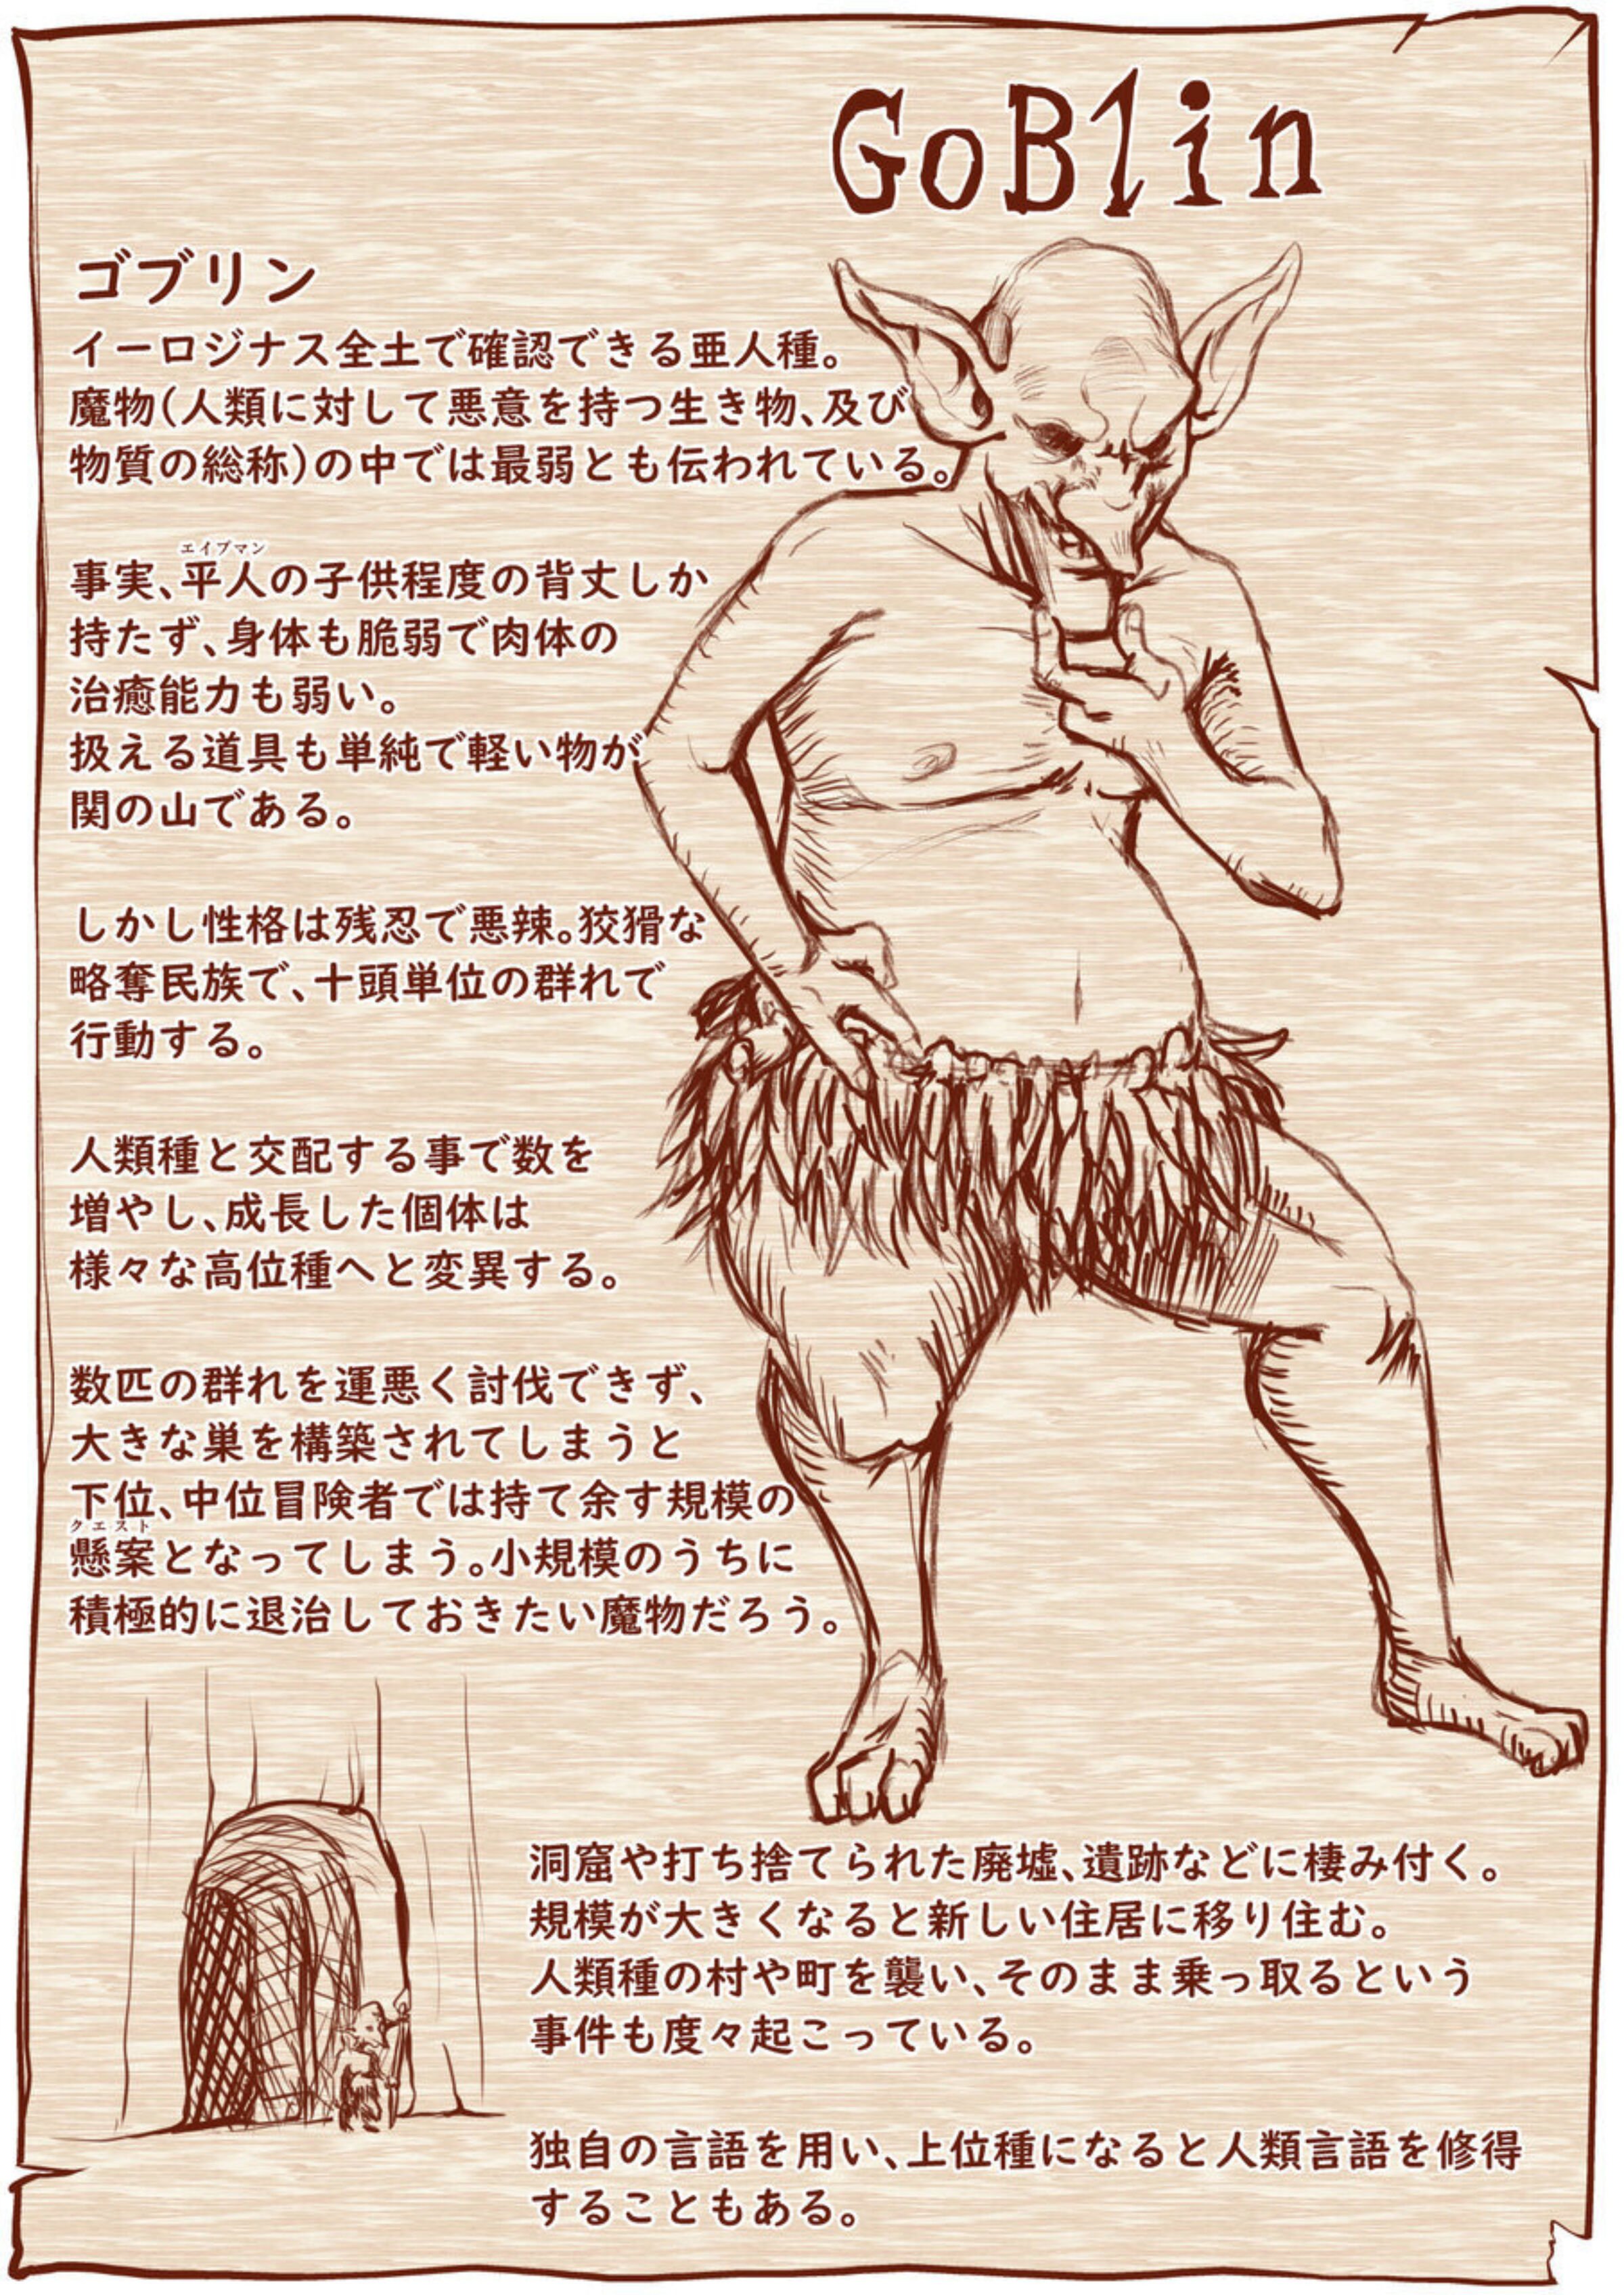 GoBlin
ゴブリン
イーロジナス全土で確認できる亜人種。
魔物(人類に対して悪意を持つ生き物、及び
物質の総称)の中では最弱とも伝われている。
エイプマン
事実、平人の子供程度の背丈しか
持たず、身体も脆弱で肉体の
治癒能力も弱い。
扱える道具も単純で軽い物が
関の山である。
しかし性格は残忍で悪辣。狡猾な
略奪民族で、十頭単位の群れで
行動する。
人類種と交配する事で数を
増やし、成長した個体は
様々な高位種へと変異する。
数匹の群れを運悪く討伐できず、
大きな巣を構築されてしまうと
下位、中位冒険者では持て余す規模の
クエスト
懸案となってしまう。小規模のうちに
積極的に退治しておきたい魔物だろう。
洞窟や打ち捨てられた廃墟、遺跡などに棲み付く。
規模が大きくなると新しい住居に移り住む。
人類種の村や町を襲い、そのまま乗っ取るという
事件も度々起こっている。
独自の言語を用い、上位種になると人類言語を修得
することもある。